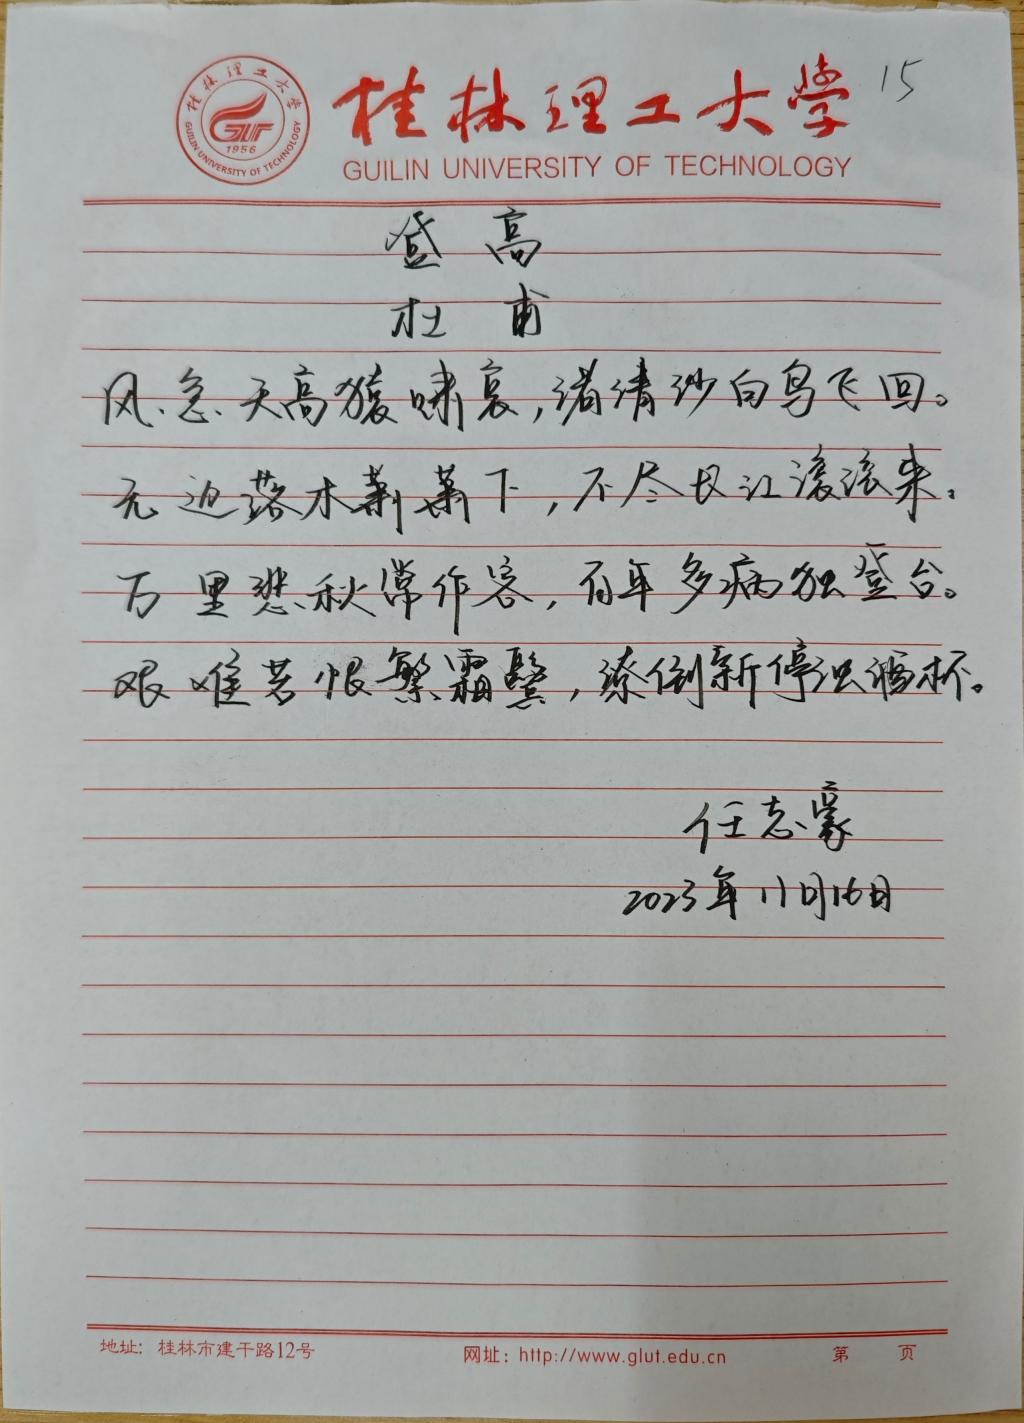 桂林理工大学
GUILIN UNIVERSITY OF TECHNOLOGY
1956
桂林理工大学 15
GUILIN UNIVERSITY OF TECHNOLOGY
登高
杜甫
风急天高猿啸哀，渚清沙白鸟飞回。
无边落木萧萧下，不尽长江滚滚来。
万里悲秋常作客，百年多病独登台。
艰难苦恨繁霜鬓，潦倒新停浊酒杯。
任志豪
2023年11月16日
地址：桂林市建干路12号 网址：http://www.glut.edu.cn 第 页